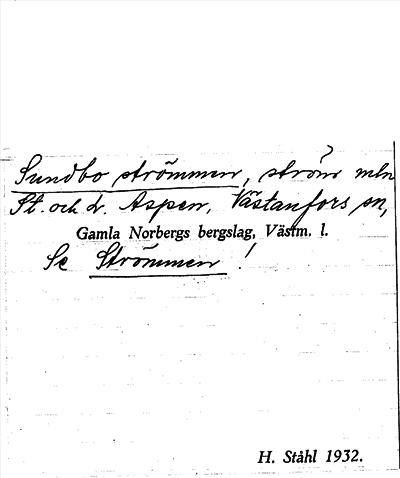 Sundbo strömmen, ström mln
St. och L. Aspen, Västanfors sn,
Gamla Norbergs bergslag, Västm. l.
Se Strömmen!
H. Ståhl 1932.